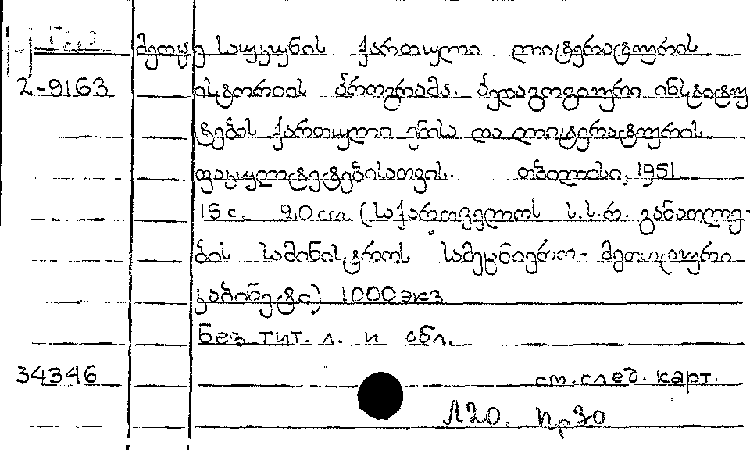 მეთცხე საუკუნის ქართული ლიტერატურის
2-9163 ისტორიის პროგრამა. პედაგოგიური ინსტიტუ
ტების ქართული ენისა და ლიტერატურის
ფაკულტეტებისათვის. თბილისი, 1951
15 с. 20 см (საქართველოს ს.ს.რ. განათლე-
ბის სამინისტროს სამეცნიერო-მეთოდური
კაბინეტი) 1000 экз
Без тит. л. и обл.
34346 см. след. карт.
Л20. Пр30